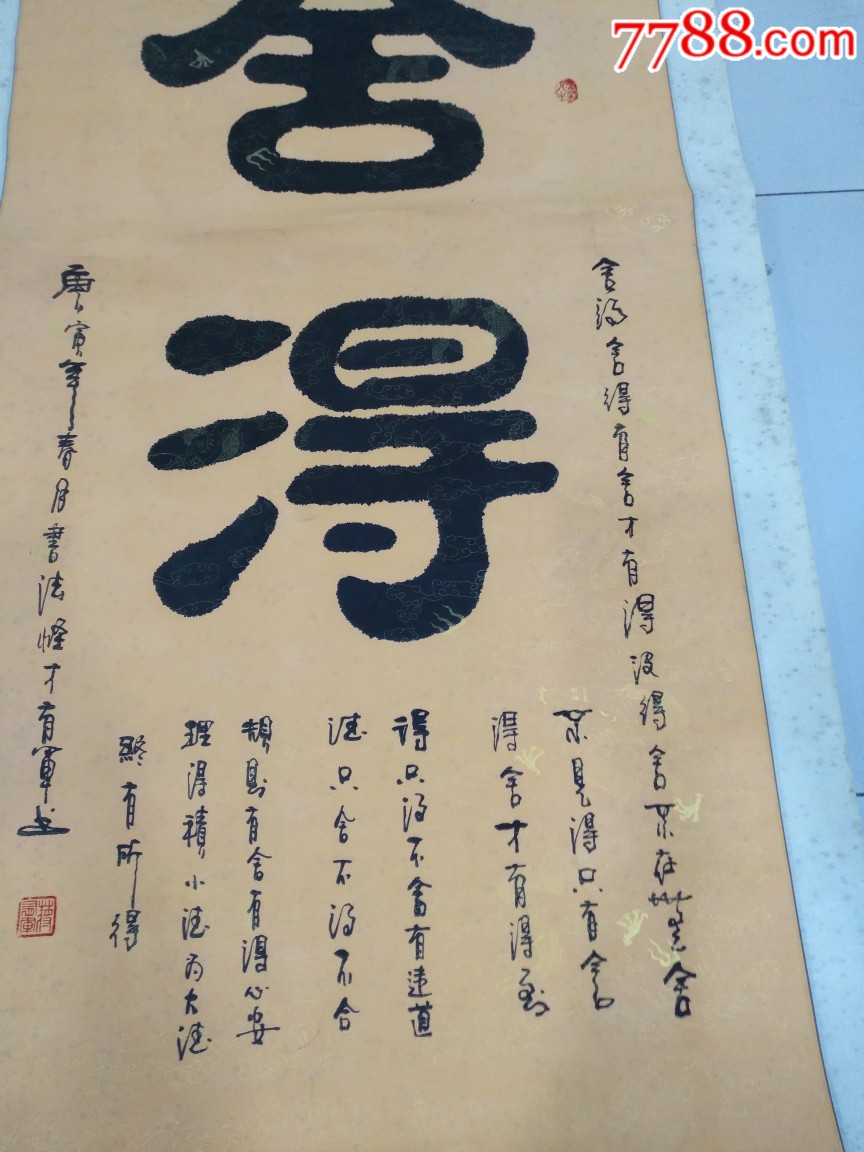 7788.com
舍
得
舍得舍得有舍才有得没得舍不在舍
不見得只有舍
得舍才有得到
得只得不舍有違道
德只舍不得不合
規則有舍有得心安
理得積小德為大德
終有所得
庚寅年春月書法怪才有軍書